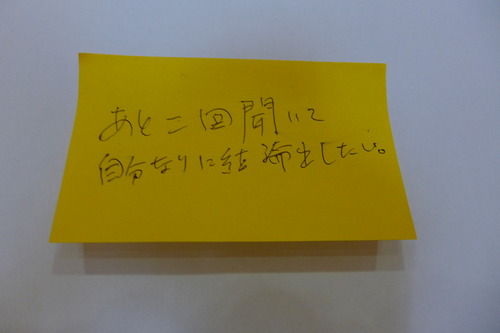 あと二回聞いて
自分なりに結論出したい。